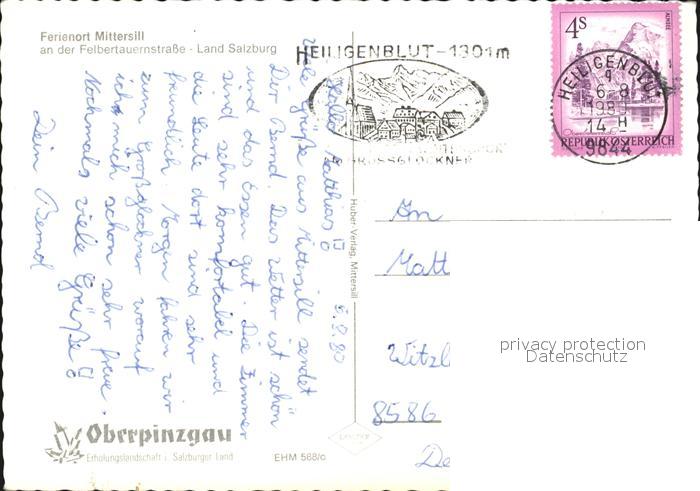 Ferienort Mittersill
an der Felbertauernstraße - Land Salzburg
HEILIGENBLUT-1301m
GROSSGLOCKNER
4S
ALMSEE
REPUBLIK ÖSTERREICH
HEILIGENBLUT
6.8
14 H
9844
5.8.80
Hallo Matthias!
Viele Grüße aus Mittersill sendet
Dir Bernd. Das Wetter ist schön
und das Essen gut. Die Zimmer
sind sehr komfortabel und
die Leute dort sind sehr
freundlich. Morgen fahren wir
zum Großglockner worauf
ich mich schon sehr freue.
Nochmals viele Grüße!
Dein Bernd
Huber-Verlag, Mittersill
An
Matt
Witzl
8586
De
privacy protection
Datenschutz
Oberpinzgau
Erholungslandschaft i. Salzburger Land
EHM 568/c